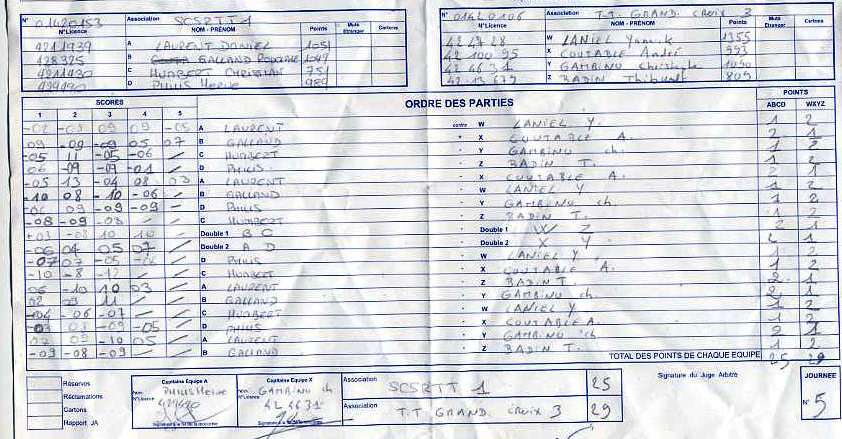 N° 01420153 Association SCSRTT 1
N°Licence NOM - PRÉNOM Points Mute Etranger Cartons
4211939 A LAURENT DANIEL 1051
428325 B GALLAND 1049
4211430 C HUMBERT CHRISTIAN 751
D PHILIS Herve 989
N° 01420106 Association T.T. GRAND. CROIX 3
N°Licence NOM - PRÉNOM Points Mute Etranger Cartons
42 47 28 W LANIEL Yannick 1355
42 100 95 X COUTABLE André 993
42 46 31 Y GAMBINO Christophe 1090
42 13 679 Z BADIN Thibault 809
SCORES ORDRE DES PARTIES POINTS
1 2 3 4 5 ABCD WXYZ
-02 -08 09 09 -05 A LAURENT contre W LANIEL Y. 1 2
09 -09 -09 05 07 B GALLAND X COUTABLE A. 2 1
-05 11 -05 -06 C HUMBERT Y GAMBINO ch. 1 2
06 -09 -09 -01 D PHILIS Z BADIN T. 1 2
-05 13 -04 08 03 A LAURENT X COUTABLE A. 2 1
-10 08 -10 -06 B GALLAND W LANIEL Y. 1 2
09 -09 -09 D PHILIS Y GAMBINO ch. 1 2
-08 -09 -03 C HUMBERT Z BADIN T. 1 2
-08 10 10 Double 1 B C Double 1 W Z 2 1
-06 04 05 07 Double 2 A D Double 2 X Y 2 1
-07 07 -05 D PHILIS W LANIEL Y 1 2
-10 -8 -12 C HUMBERT X COUTABLE A. 1 2
06 -10 10 03 A LAURENT Z BADIN T 2 1
02 11 B GALLAND Y GAMBINO ch. 2 1
-04 -06 -07 C HUMBERT W LANIEL Y 1 2
-03 08 -09 -05 D PHILIS X COUTABLE A. 1 2
09 -10 05 A LAURENT Y GAMBINO ch 2 1
-09 -08 -09 B GALLAND Z BADIN T. 1 2
TOTAL DES POINTS DE CHAQUE EQUIPE 25 29
Réserves
Réclamations
Cartons
Rapport JA
Capitaine Equipe A
Nom PHILIS Herve
N°Licence
Capitaine Equipe X
Nom GAMBINO ch
N°Licence 42 4631
Association SCSRTT 1 25
Association T.T. GRAND. CROIX 3 29
Signature du Juge Arbitre
JOURNEE
N° 5